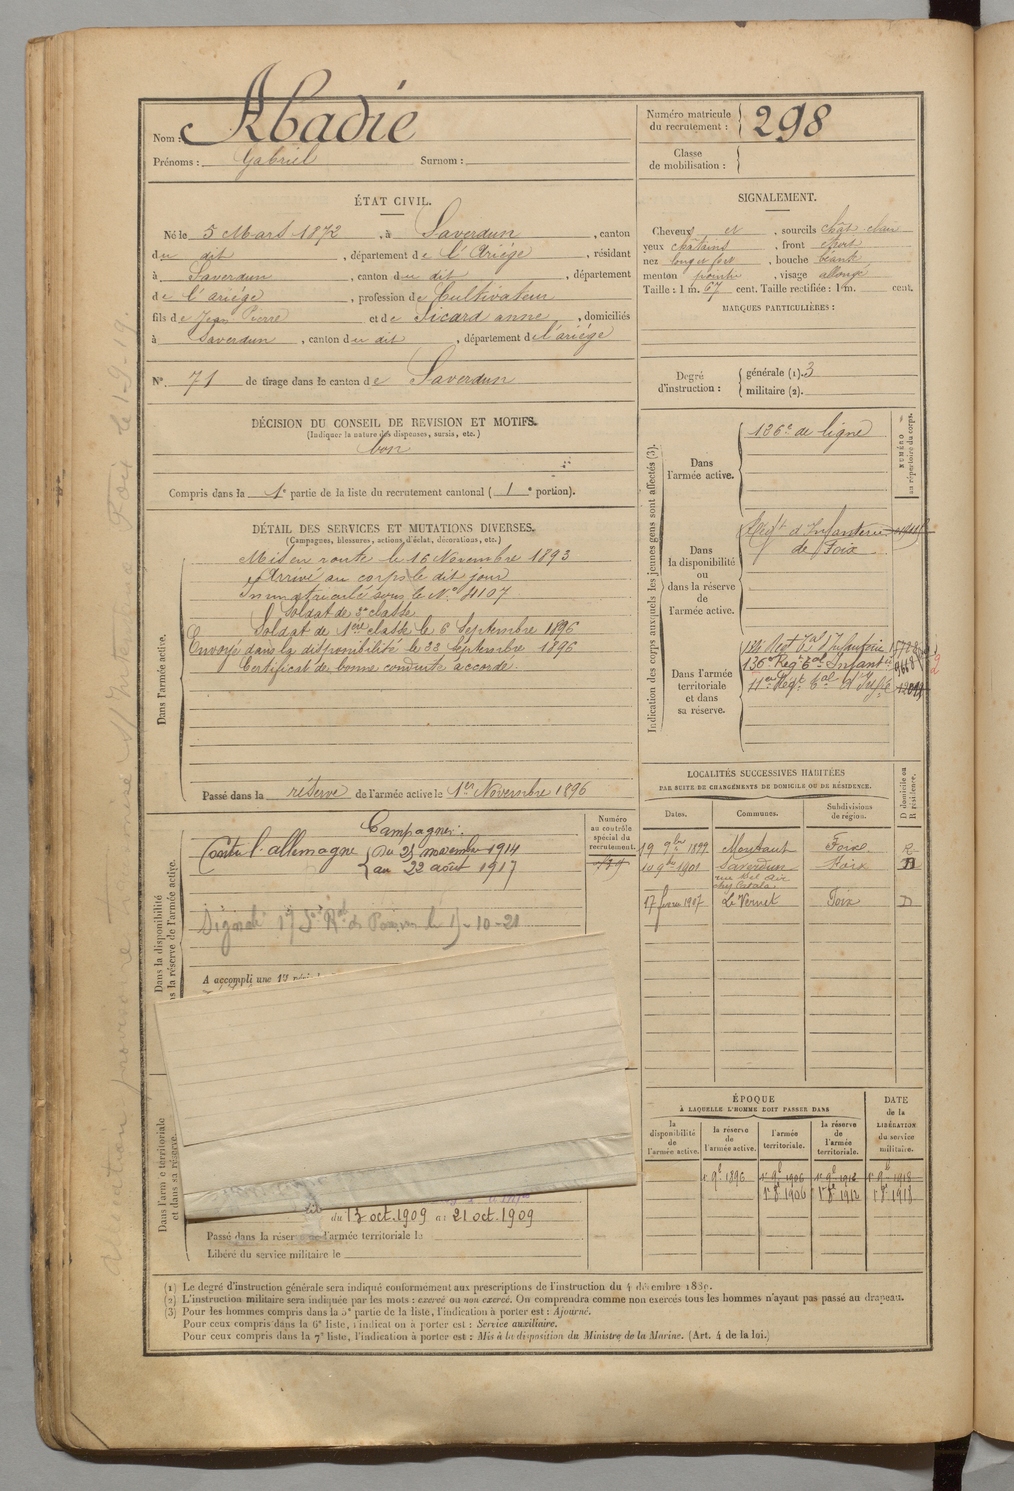 Nom : Abadie
Prénoms : Gabriel Surnom :
Numéro matricule
du recrutement : 298
Classe
de mobilisation :
ÉTAT CIVIL.
Né le 5 Mars 1872, à Saverdun, canton
du dit, département de l'Ariége, résidant
à Saverdun, canton du dit, département
de l'ariége, profession de Cultivateur
fils de Jean Pierre et de Sicard anne, domiciliés
à Saverdun, canton du dit, département de l'ariége
N° 71 de tirage dans le canton de Saverdun
SIGNALEMENT.
Cheveux et, sourcils chât. clair
yeux châtains, front étroit
nez long et fort, bouche béante
menton pointu, visage allongé
Taille : 1 m. 67 cent. Taille rectifiée : 1 m. cent.
MARQUES PARTICULIÈRES :
Degré
d'instruction :
générale (1). 3
militaire (2).
DÉCISION DU CONSEIL DE REVISION ET MOTIFS.
(Indiquer la nature des dispenses, sursis, etc.)
bon
Compris dans la 1e partie de la liste du recrutement cantonal (1e portion).
DÉTAIL DES SERVICES ET MUTATIONS DIVERSES.
(Campagnes, blessures, actions d'éclat, décorations, etc.)
Dans l'armée active.
Mis en route le 16 Novembre 1893
Arrivé au corps le dit jour
Immatriculé sous le N° 4107
Soldat de 2e classe
Soldat de 1ère classe le 6 Septembre 1896
Envoyé dans la disponibilité le Septembre 1896
Certificat de bonne conduite accordé.
Passé dans la réserve de l'armée active le 1er Novembre 1896
Indication des corps auxquels les jeunes gens sont affectés (3).
NUMÉRO
au répertoire du corps.
Dans
l'armée active.
126e de ligne
Dans
la disponibilité
ou
dans la réserve
de
l'armée active.
Regt d'Infanterie
de Foix
Dans l'armée
territoriale
et dans
sa réserve.
Regt Tal d'Infanterie
136e Regt Tal Infantie
11e Regt Tal d'Infie
LOCALITÉS SUCCESSIVES HABITÉES
PAR SUITE DE CHANGEMENTS DE DOMICILE OU DE RÉSIDENCE.
Dates. Communes. Subdivisions de région. D domicile ou R résidence.
19 9bre 1899 Montaut Foix R
10 9bre 1901 Saverdun Foix D
rue Bel Air
17 février 1907 Le Vernet Foix D
Dans la disponibilité
dans la réserve de l'armée active.
Numéro
au contrôle
spécial du
recrutement.
Campagnes :
Contre l'allemagne Du 25 novembre 1914
au 22 août 1917
A accompli une 1re
Dans l'armée territoriale
et dans sa réserve.
du 13 oct. 1909 au 21 oct. 1909
Passé dans la réserve de l'armée territoriale le
Libéré du service militaire le
ÉPOQUE
À LAQUELLE L'HOMME DOIT PASSER DANS
la disponibilité de l'armée active.
la réserve de l'armée active.
l'armée territoriale.
la réserve de l'armée territoriale.
DATE de la LIBÉRATION du service militaire.
1er 9bre 1896 1er 9bre 1906 1er 9bre 1912 1er 9bre 1918
1er 8bre 1906 1er 8bre 1912 1er 8bre 1918
(1) Le degré d'instruction générale sera indiqué conformément aux prescriptions de l'instruction du 4 décembre 1889.
(2) L'instruction militaire sera indiquée par les mots : exercé ou non exercé. On comprendra comme non exercés tous les hommes n'ayant pas passé au drapeau.
(3) Pour les hommes compris dans la 5e partie de la liste, l'indication à porter est : Ajourné.
Pour ceux compris dans la 6e liste, l'indication à porter est : Service auxiliaire.
Pour ceux compris dans la 7e liste, l'indication à porter est : Mis à la disposition du Ministre de la Marine. (Art. 4 de la loi.)